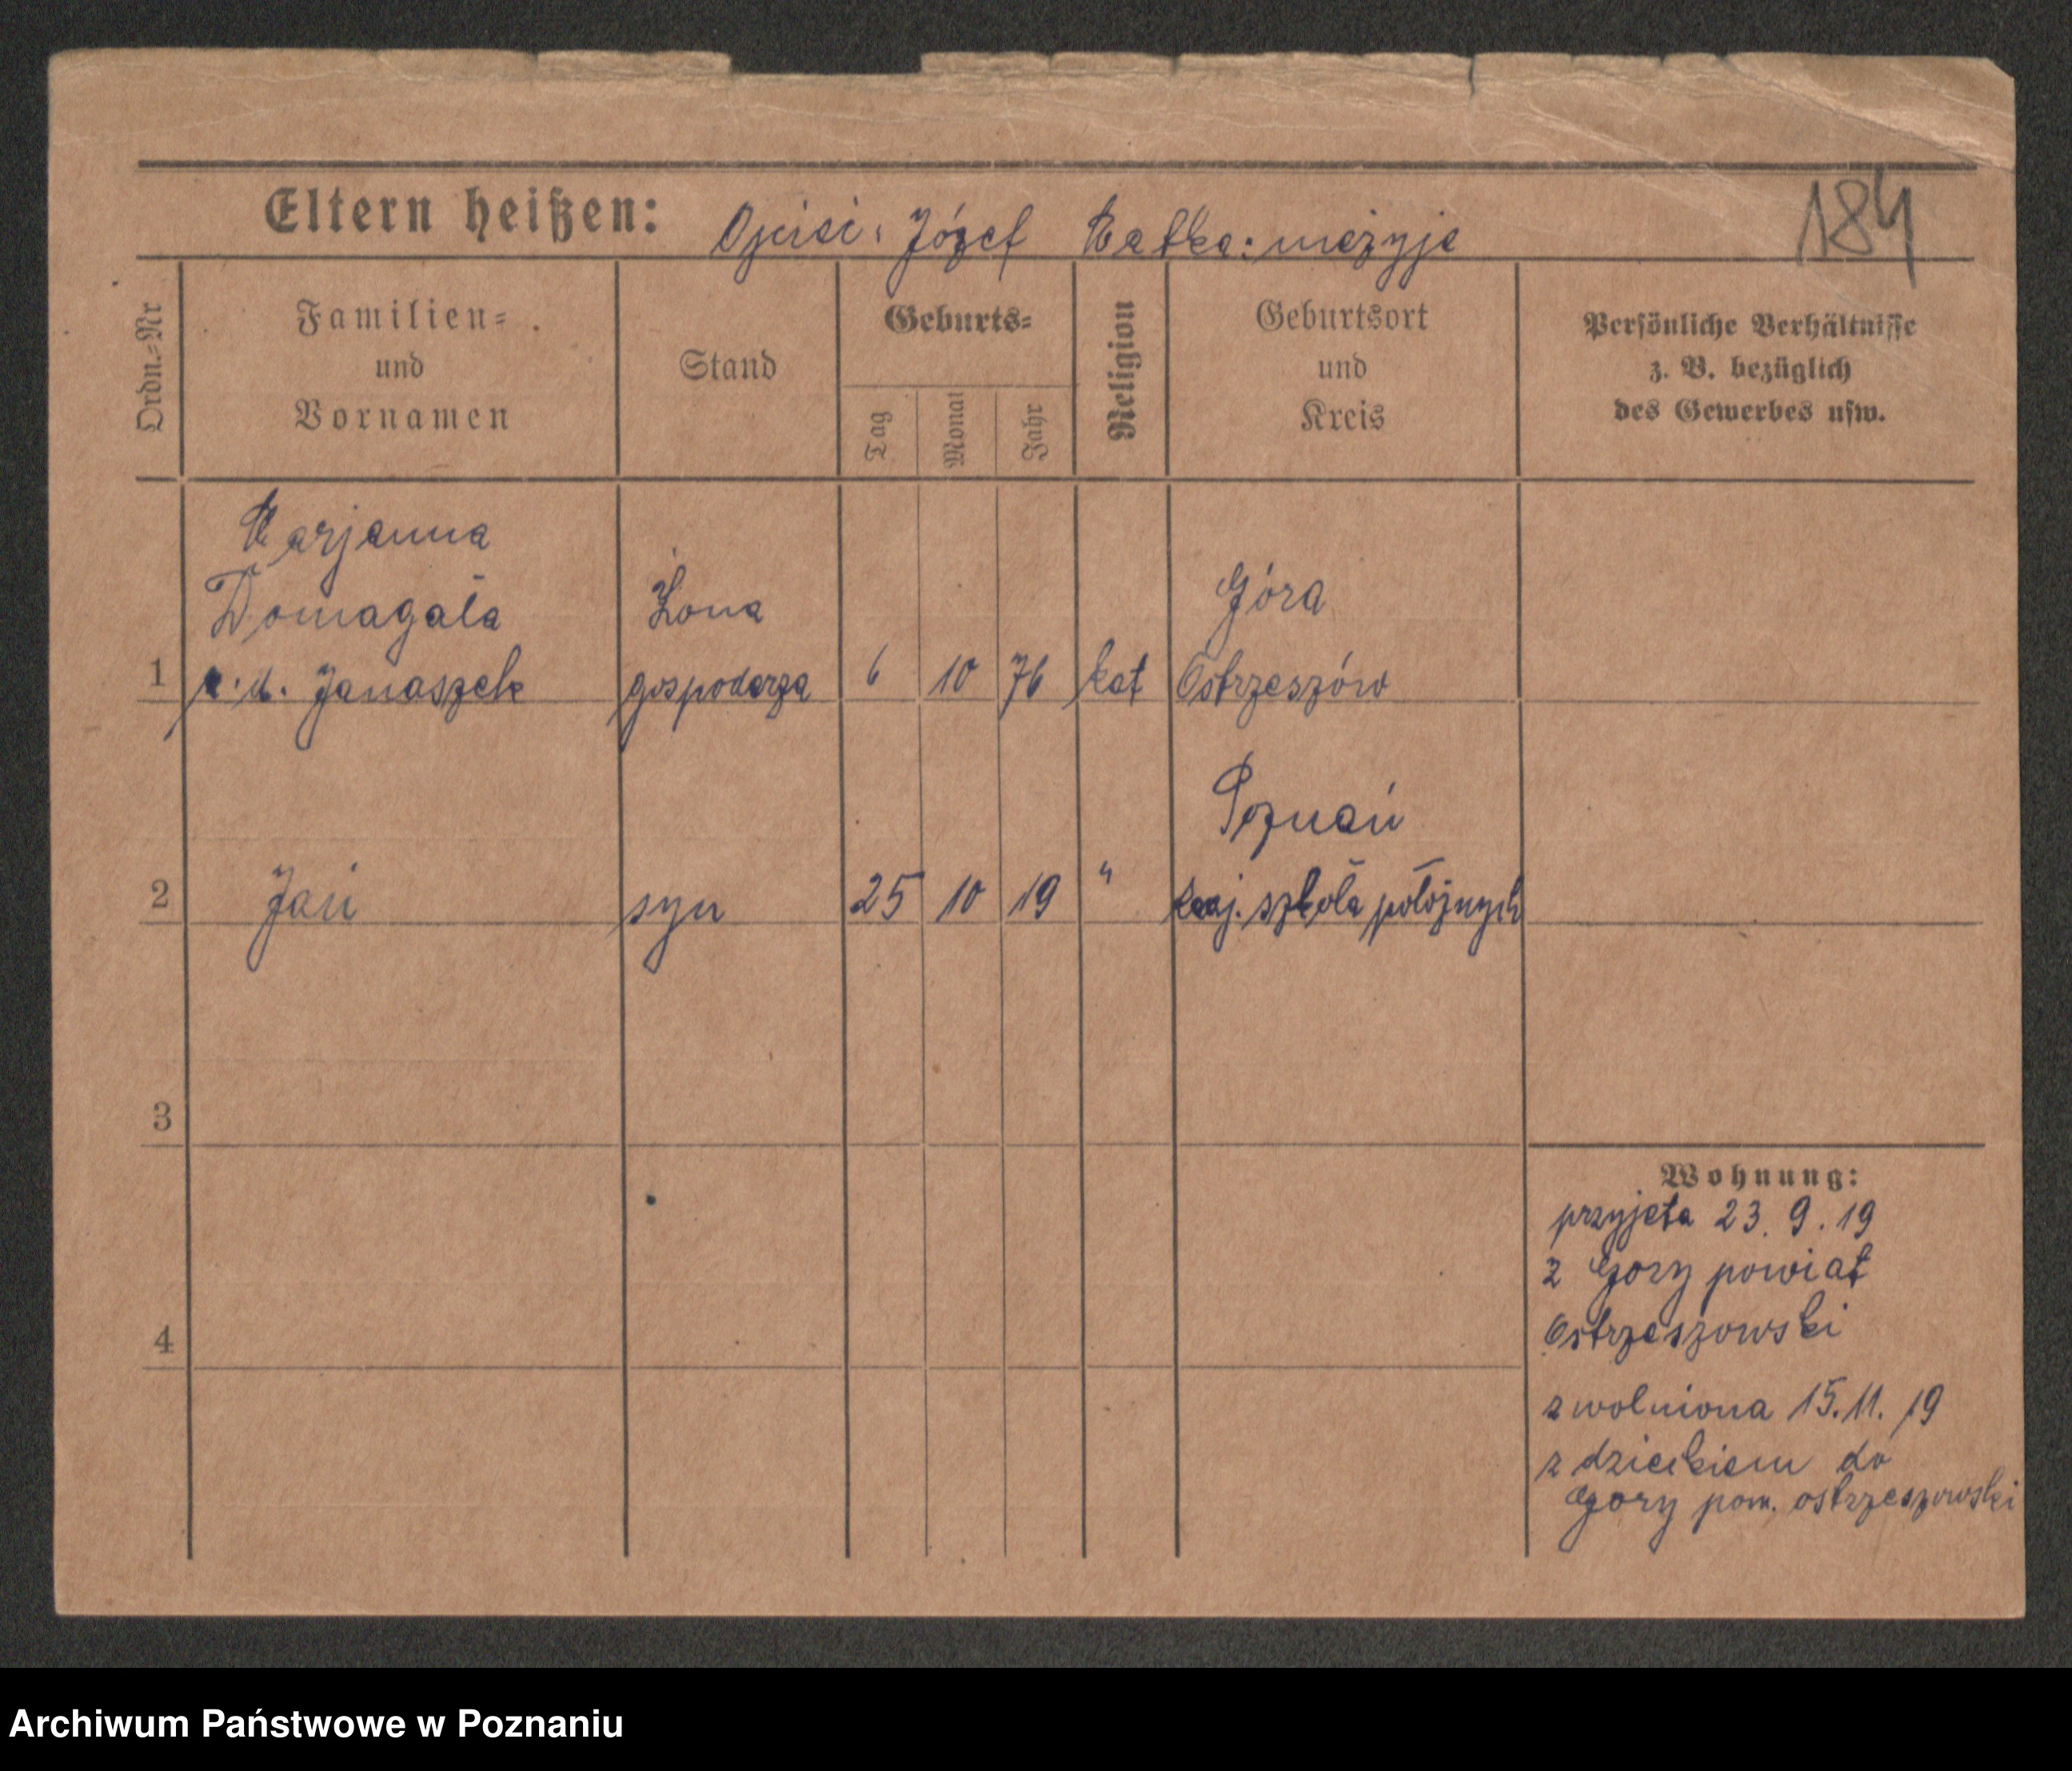 Eltern heißen: Ojciec: Józef Matka: nieżyje
184
Ordn.-Nr
Familien-
und
Vornamen
Stand
Geburts-
Tag
Monat
Jahr
Religion
Geburtsort
und
Kreis
Persönliche Verhältnisse
z. B. bezüglich
des Gewerbes usw.
Marjanna
Domagała
z. d. Janaszek
Żona
gospodarza
1
6 10 76 kat
Góra
Ostrzeszów
2
Jan
syn
25 10 19 "
Poznań
kraj. szkoła położnych
3
4
Wohnung:
przyjęta 23. 9. 19
z Gory powiat
Ostrzeszowski
zwolniona 15. 11. 19
z dzieckiem do
Gory pow. ostrzeszowski
Archiwum Państwowe w Poznaniu